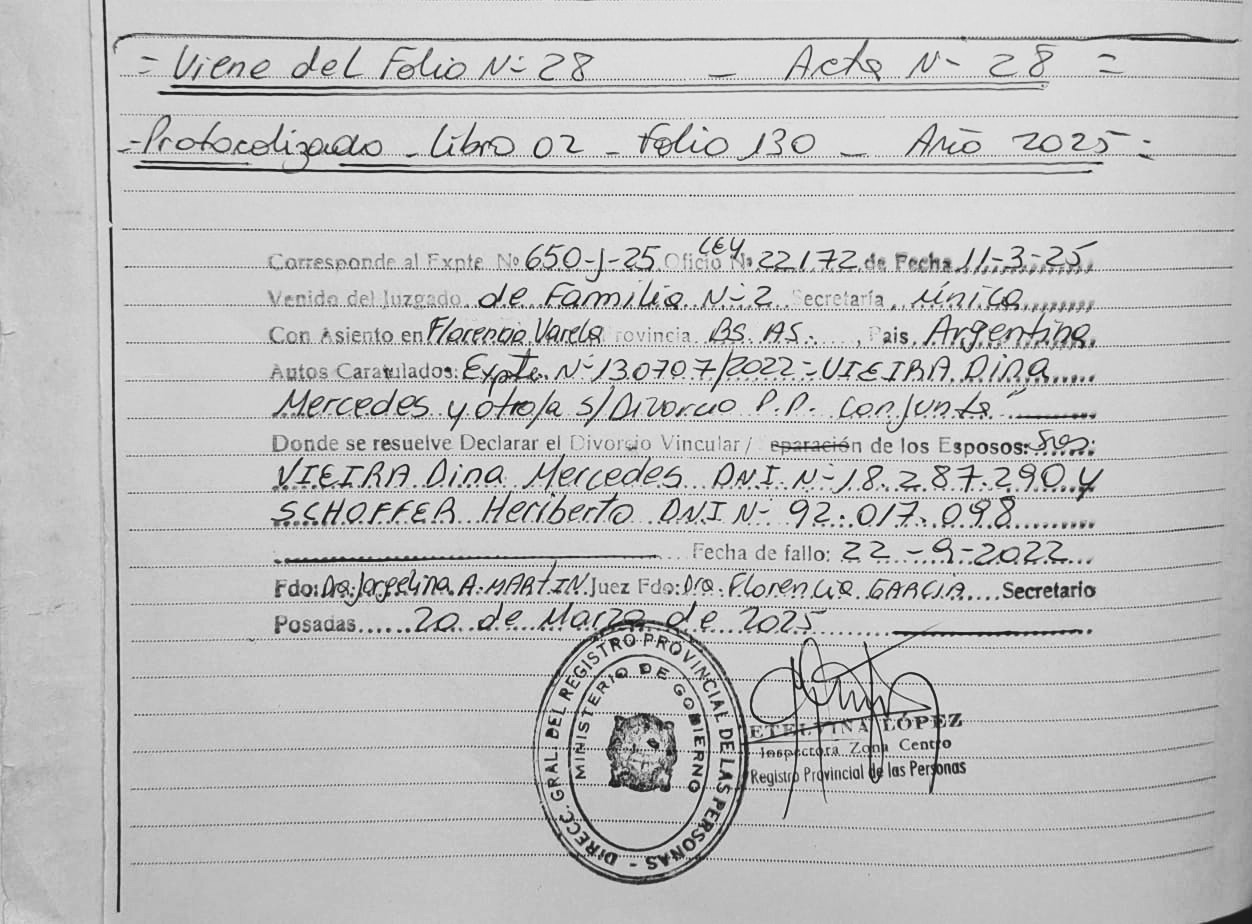 = Viene del Folio Nº 28 - Acta Nº 28 =
- Protocolizado - Libro 02 - Folio 130 - Año 2025 =
Corresponde al Expte Nº 650-J-25 Oficio LEY Nº 22172 de Fecha 11-3-25
Venido del Juzgado de Familia Nº 2 Secretaría Única
Con Asiento en Florencio Varela Provincia BS. AS. , Pais Argentina
Autos Caratulados: Expte. Nº 130707/2022 = VIEIRA Dina
Mercedes y otro/a s/ Divorcio P.P. Conjunta"
Donde se resuelve Declarar el Divorsio Vincular / eparación de los Esposos:
VIEIRA Dina Mercedes DNI Nº 18.287.290 y
SCHOFFER Heriberto DNI Nº 92.017.098
Fecha de fallo: 22-9-2022
Fdo: Dra. Jorgelina A. MARTIN Juez Fdo: Dra. Florencia GARCIA Secretario
Posadas 20 de Marzo de 2025
DIRECC. GRAL. DEL REGISTRO PROVINCIAL DE LAS PERSONAS -
MINISTERIO DE GOBIERNO
ETELVINA LÓPEZ
Inspectora Zona Centro
Registro Provincial de las Personas